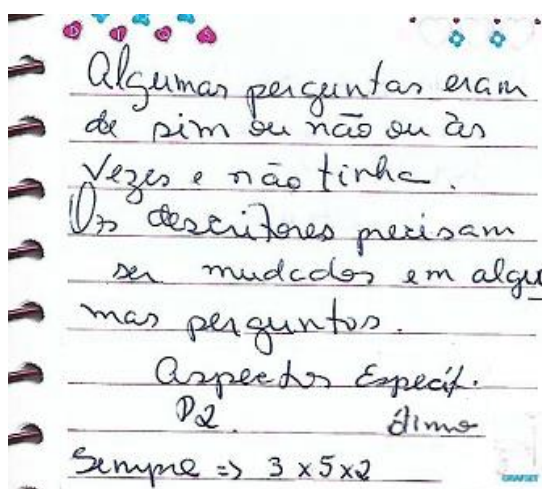 DIAS
Algumas perguntas eram
de sim ou não ou às
vezes e não tinha.
Os descritores precisam
ser mudados em algu
mas perguntas.
Aspectos Específ.
P2. ótimo
Sempre => 3 x 5 x 2
GRAFSET